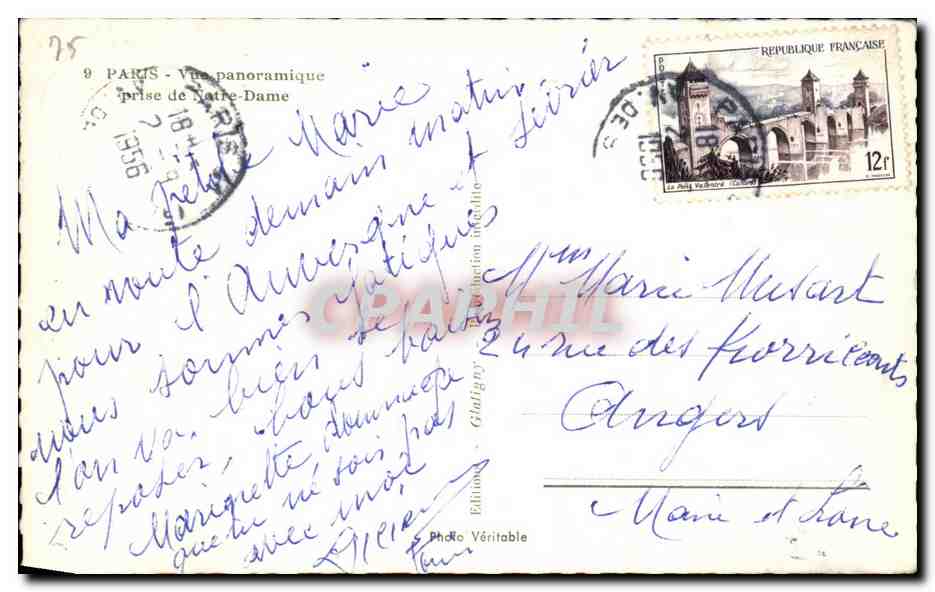 75
9 PARIS - Vue panoramique
prise de Notre-Dame
PARIS
18H
1956
REPUBLIQUE FRANÇAISE
12f
Le Pont Valentré (Cahors)
Ma petite Marie
en route demain matin
pour l'Auvergne et
nous sommes fatigués
l'on va bien se
reposer, bons baisers
Marinette dommage
que tu ne sois pas
avec moi
Editions Glatigny - Reproduction interdite
Photo Véritable
CPAPHIL
Mme Marie Musart
rue des
Angers
Maine et Loire